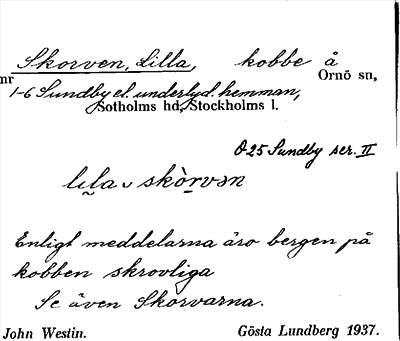 Skorven, Lilla, kobbe å
nr Ornö sn,
1-6 Sundby el. underlyd. hemman,
Sotholms hd, Stockholms l.
Ö 25 Sundby ser. II
Enligt meddelarna äro bergen på
kobben skrovliga
Se även Skorvarna.
John Westin. Gösta Lundberg 1937.